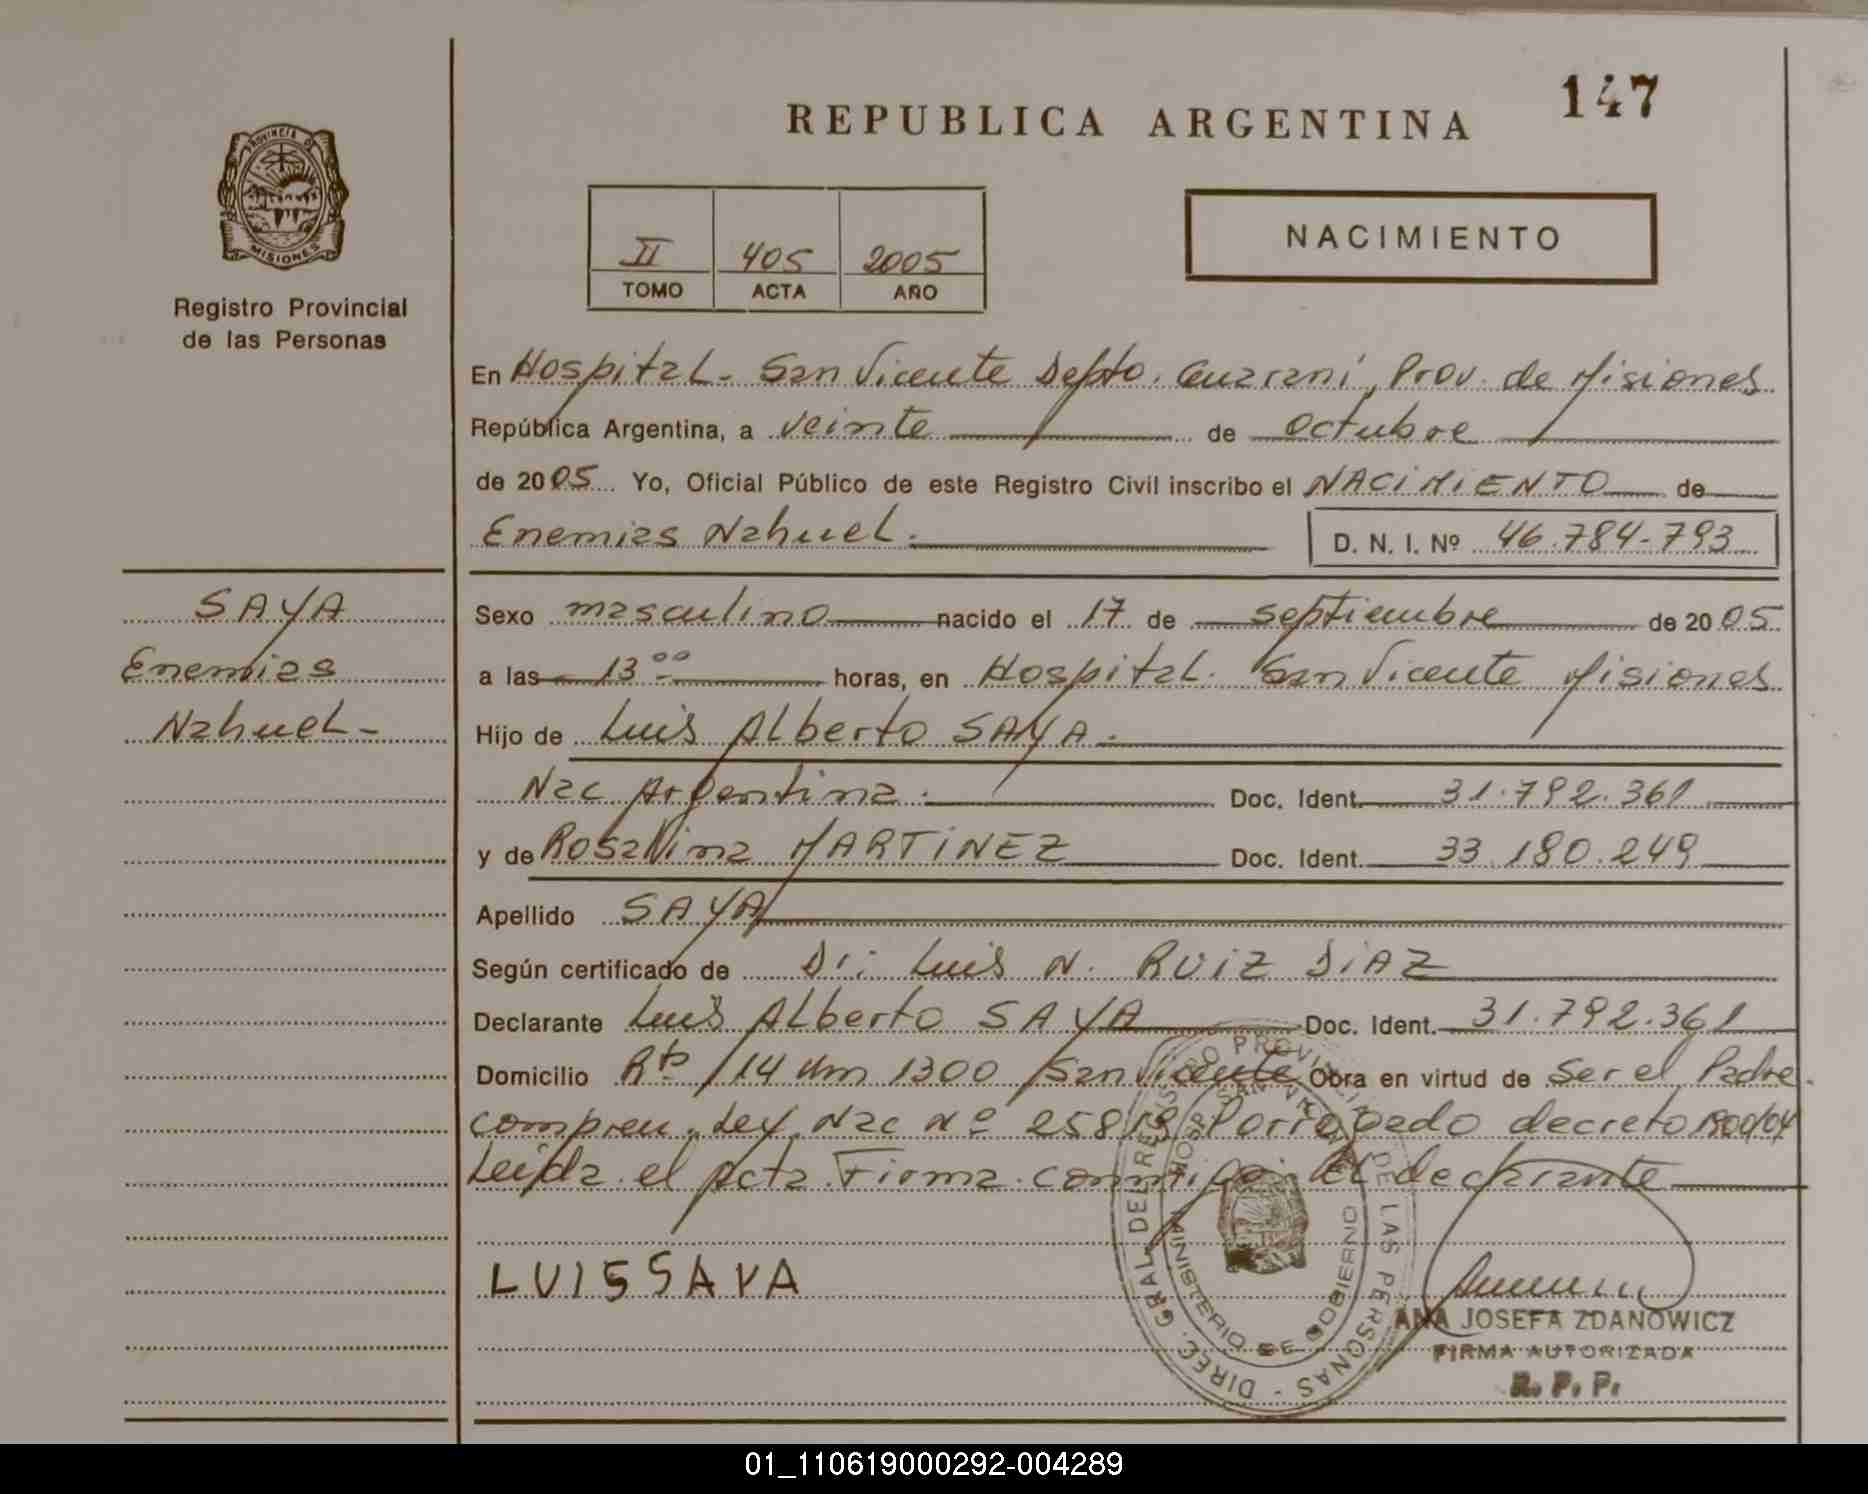 147
REPUBLICA ARGENTINA
PROVINCIA DE
MISIONES
Registro Provincial
de las Personas
II 405 2005
TOMO ACTA AÑO
NACIMIENTO
En Hospital - San Vicente Depto. Guaraní, Prov. de Misiones
República Argentina, a veinte de octubre
de 2005 Yo, Oficial Público de este Registro Civil inscribo el NACIMIENTO de
Enemias Nahuel. D. N. I. Nº 46.784-793
SAYA
Enemias
Nahuel-
Sexo masculino nacido el 17 de septiembre de 2005
a las 13 ºº horas, en Hospital. San Vicente Misiones
Hijo de Luis Alberto SAYA.
Nac Argentina. Doc. Ident. 31.792.361
y de Rosalina MARTINEZ Doc. Ident. 33.180.249
Apellido SAYA
Según certificado de Dr: Luis N. RUIZ DIAZ
Declarante Luis Alberto SAYA Doc. Ident. 31.792.361
Domicilio Rta 14 Km 1300 San Vicente Obra en virtud de ser el Padre.
compren. Ley Nac Nº 25819 Prorrogado decreto
Leida el acta Firma conmigo el declarante
LUIS SAYA
DIREC. GRAL. DEL REGISTRO PROVINCIAL DE LAS PERSONAS -
MINISTERIO DE GOBIERNO
ANA JOSEFA ZDANOWICZ
FIRMA AUTORIZADA
R. P. P.
01_110619000292-004289